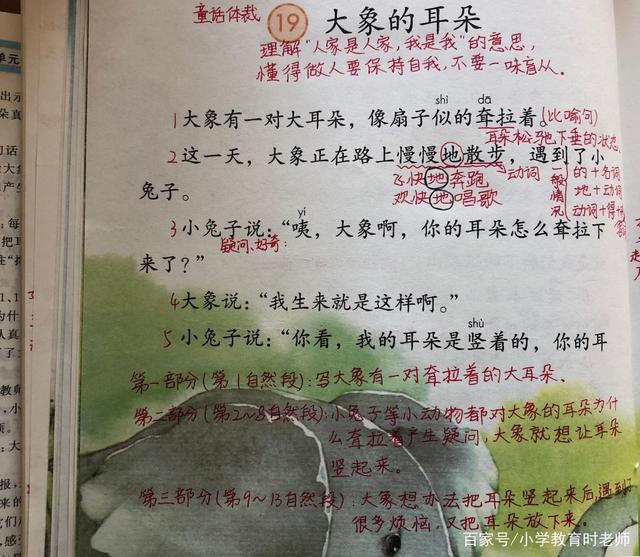 童话体裁
19 大象的耳朵
理解"人家是人家,我是我"的意思,
懂得做人要保持自我,不要一味盲从。
shì dā
1大象有一对大耳朵,像扇子似的耷拉着。(比喻句)
耳朵松弛下垂的状态,
2这一天,大象正在路上慢慢地散步,遇到了小
兔子。
飞快地奔跑
欢快地唱歌
动词
一般情况
的+名词
地+动词
动词+得+
yí
3小兔子说:"咦,大象啊,你的耳朵怎么耷拉下
疑问、好奇:
来了?"
4大象说:"我生来就是这样啊。"
shù
5小兔子说:"你看,我的耳朵是竖着的,你的耳
第一部分(第1自然段):写大象有一对耷拉着的大耳朵。
第二部分(第2~8自然段):小兔子等小动物都对大象的耳朵为什
么耷拉着产生疑问,大象就想让耳朵
竖起来。
第三部分(第9~13自然段):大象想办法把耳朵竖起来后,遇到了
很多烦恼,又把耳朵放下来。
百家号/小学教育时老师